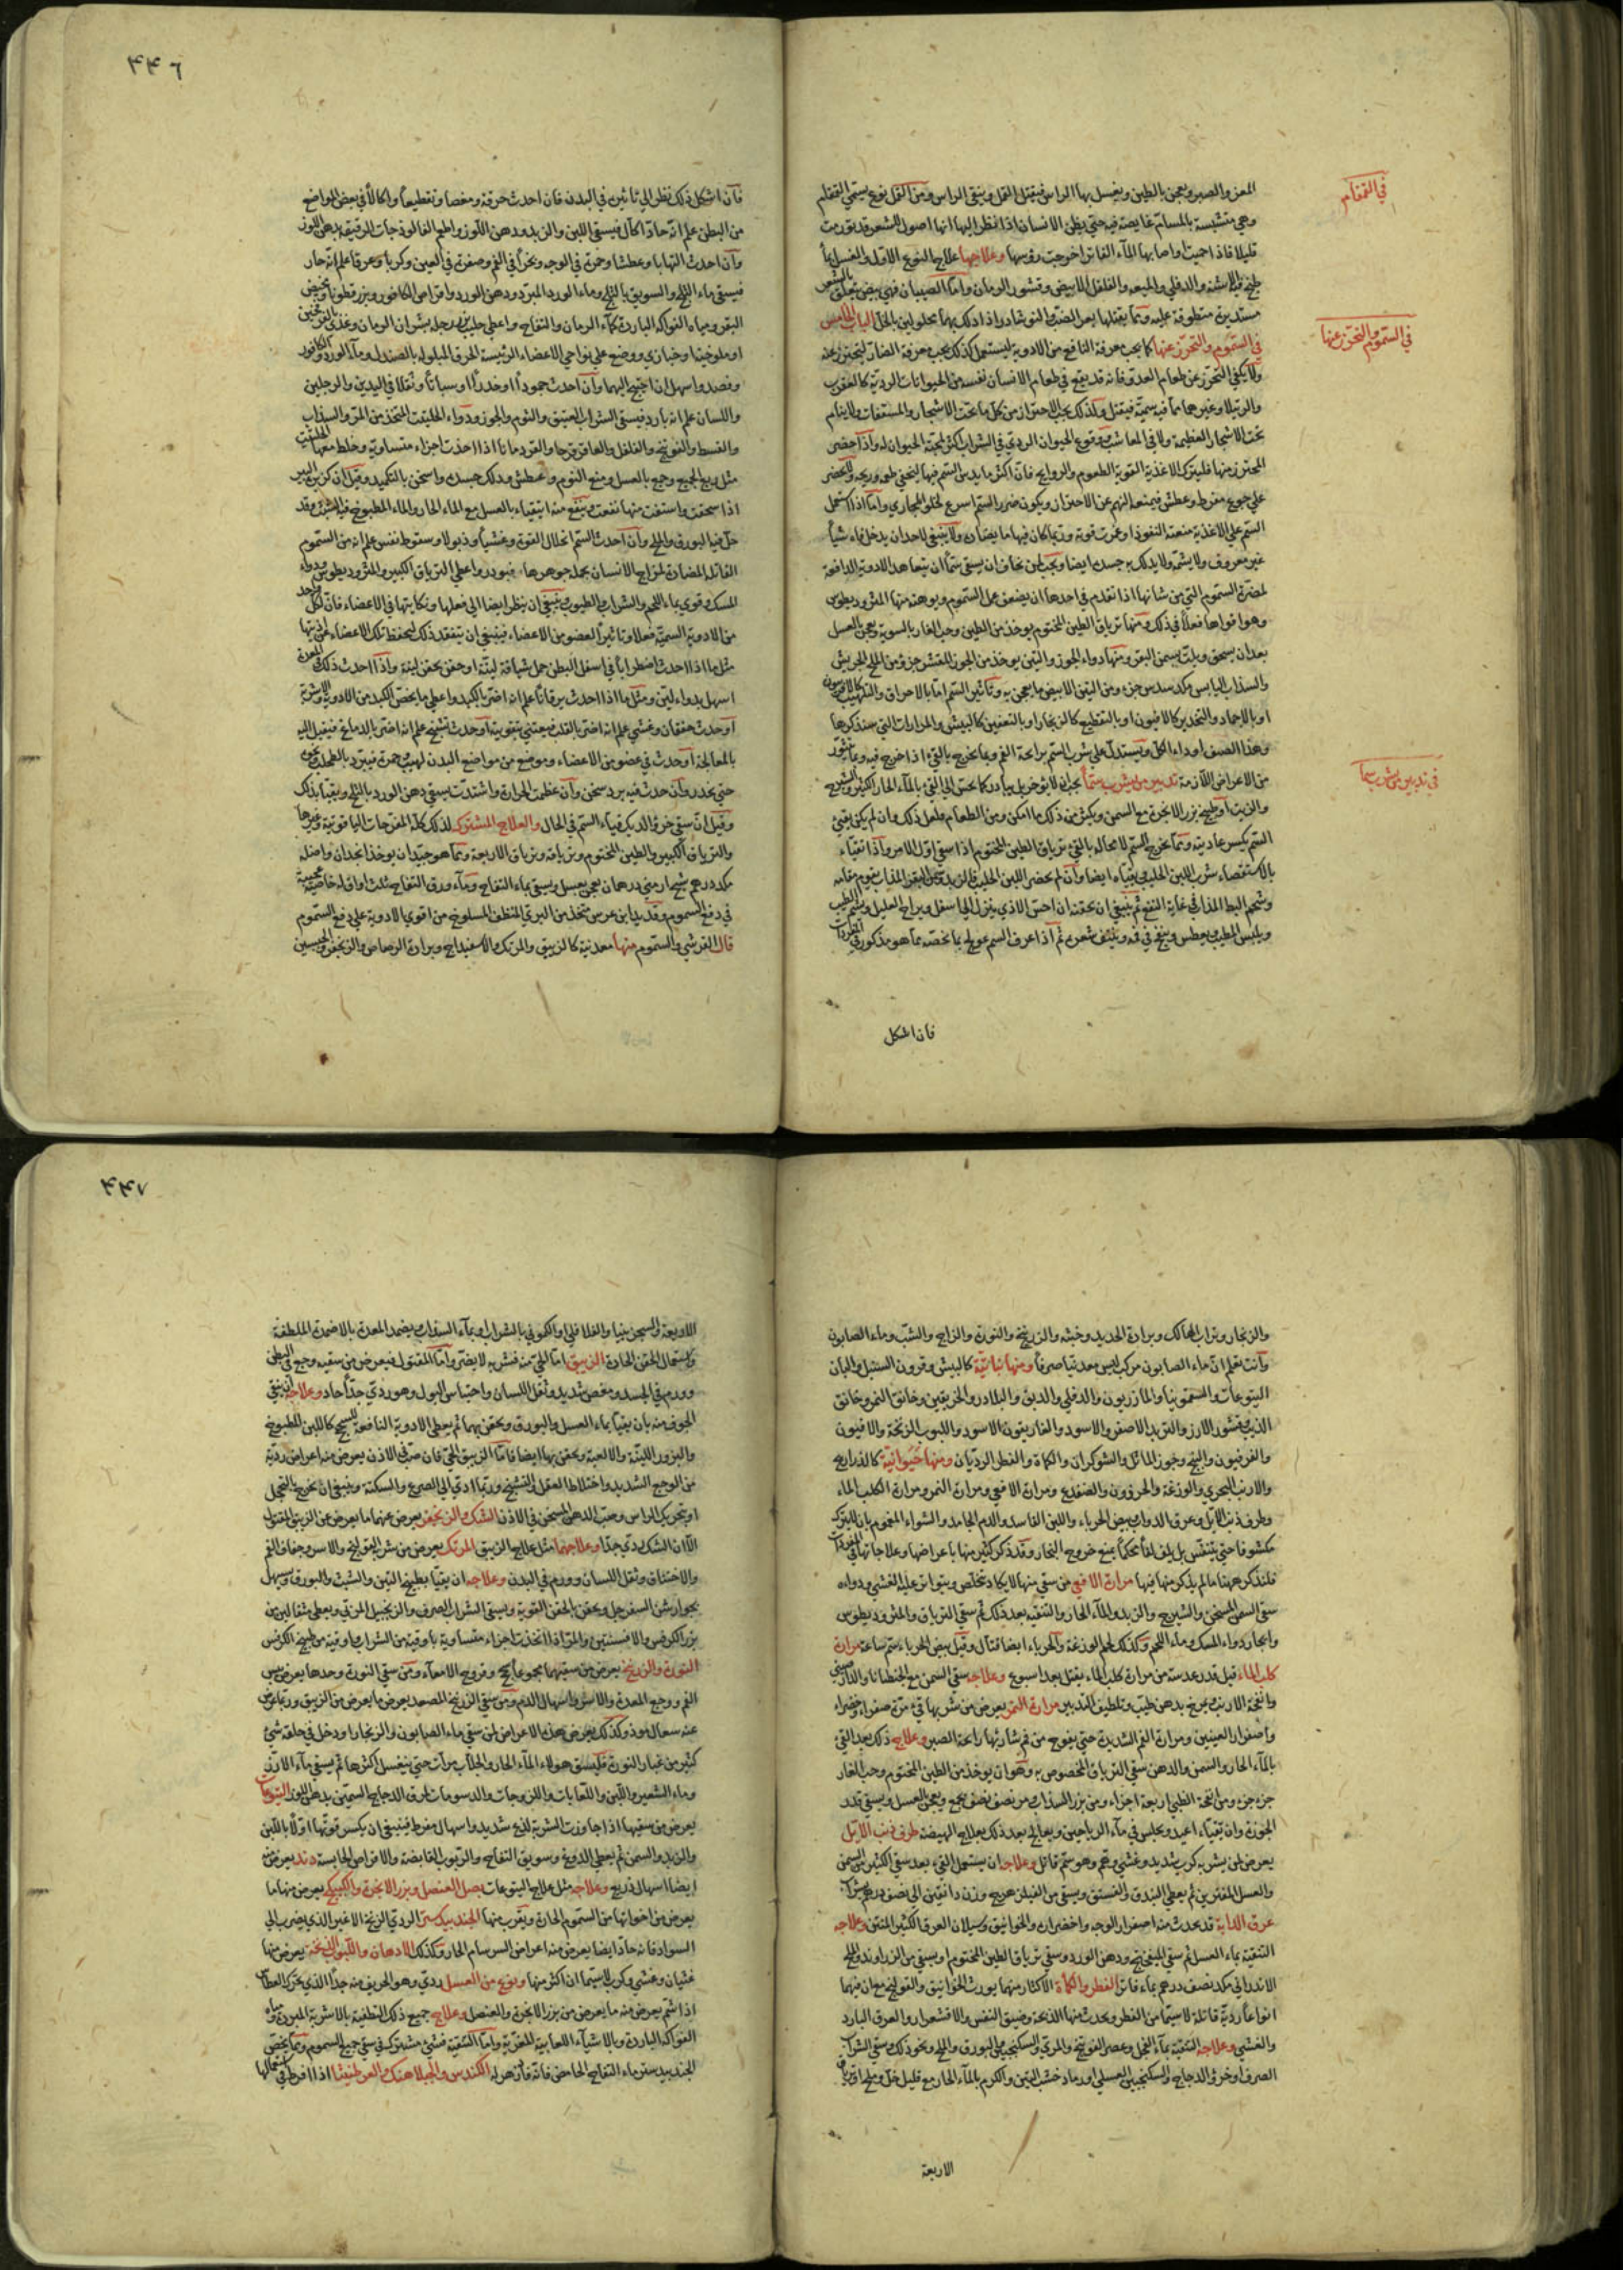 في القمقام
المعز والصبر ويعجن بالطين ويغسل بها الراس فيقتل القمل وينقي الراس ومن القمل نوع يسمي القمقام
وهي متشبثة بالمسام غايصة فيه حتي يظن الانسان اذا نظر اليها انها اصول الشعر قد تورمت
قليلا فاذا حميت واصابها المآء الفاتر اخرجت رؤسها وعلاجها علاج النوع الاول والغسل بمآ
طبخ فيه الاشنه والدفلي والميعه والفلفل الابيض وقشور الرمان وامّا الصيبان فهي بيض يتعلق بالشعر
مستديرة متطوقة عليه وممّا يقتلها بعر الضب والنوشادر اذا دلك بهما محلولين بالخل الباب الخامس
في السموم والتحرز عنها
في السموم والتحرز عنها كما يجب معرفة النافع من الادوية ليستعمل كذلك يجب معرفة الضار ليتحرز عنه
ولا يكفي التحرز عن طعام العدو فانه قد يقع في طعام الانسان نفسه من الحيوانات الردية كالعقرب
والرتيلا وغيرها مما فيه سمية فيقتل وكذلك يجب الاحتراز من كل ما تحت الاشجار والمستغات ولا ينام
تحت الاشجار العظيمة ولا في المعاشب ووقوع الحيوان الردي في الشراب اكثر لمحبة الحيوان له واذا حضر
المحترز منها فليترك الاغذية القوية الطعوم والروايح فان اكثر ما يدس السم فيها ليخفي طعمه وريحه ولا يحضر
علي جوع مفرط وعطش فيمنعه النهم عن الاحتراز ويكون ضرر السم اسرع لخلو المجاري وامّا اذا استعمل
السم علي الاغذية منعته النفوذ او غمرت قوته وربما كان فيها ما يضاده ولا ينبغي لاحد ان يدخل فاه شيأ
غير معروف ولا يشمه ولا يدلك به جسده ايضا ويجب لمن يخاف ان يسقي سمّا ان يتعاهد الادوية الدافعة
لمضرة السموم التي من شانها اذا تقدم في اخذها ان يضعف عمل السموم ويوهنه منها المثروديطوس
وهو اقواها فعلا في ذلك ومنها ترياق الطين المختوم يوخذ من الطين وحب الغار بالسوية ويعجن بالعسل
بعد ان يسحق ويلت بسمن البقر ومنها دواء الجوز والتين يوخذ من الجوز المقشر جزؤ من الملح الجريش
والسذاب اليابس من كل سدس جزء ومن التين الابيض ما يعجن به وتاثير السم امّا بالاحراق والتلهيب كالافربيون
او بالاجماد والتخدير كالافيون او بالتقطيع كالزنجار او بالتعفين كالبيش والمرارات التي سنذكرها
وهذا الصنف اوداء الكل ويستدل علي شرب السم برائحة الفم وبما يخرج بالقيء اذا اخرج فيه وبما
في تدبير من يشرب سما
من الاعراض اللازمة تدبير من يشرب سمّا يجب ان لا يوخر بل يبادر كما يحس الي القيء بالمآء الحار الكثير والشيرج
والزيت او طبيخ بزر الانجرة مع السمن ويكثر من ذلك ما امكن ومن الطعام فلعل ذلك وان لم يكن يقيئ
السم يكسر عاديته وممّا يخرج السم لا محالة بالقيء ترياق الطين المختوم اذا سقي اول الامر واذا تقيآء
بالاستقصاء شرب اللبن الحليب بقيآء ايضا وان لم يحضر اللبن الحليب فالزبد وسمن البقر المذاب يقوم مقامه
وشحم البط المذاب في غاية النفع ثم ينبغي ان يحقنه ان احس الاذي ينزل الي اسفل ويراح العليل ويشم الطيب
ويلبس الطيب ويعطس وينفخ في فيه وينتف شعره ثم اذا عرف السم عولج بما يخصه مما هو مذكور في المفردات
فان اشكل
٤٤٦
فآن اشكل ذلك نظر الي تاثيره في البدن فان احدث حرقة ومغصا وتقطيعا واكالا في بعض المواضع
من البطن علم انه حاد اكال فيسقي اللبن والزبد ودهن اللوز واطعم الفالوذجات الرقيقه بدهن اللوز
وآن احدث التهابا وعطشا وحمرة في الوجه وبخرا في الفم وصفرة في العين وكربا وعرقا علم انه حار
فيسقي ماء الثلج والسويق بالثلج وماء الورد المبرد ودهن الورد واقراص الكافور وبزر قطونا ومخيض
البقر ومياه الفواكه الباردة كمآء الرمان والتفاح واعطي حليب بزر رجله بشراب الرمان وغذي بالفرنجين
او ملوخيا وخبازي ووضع علي نواحي الاعضاء الرئيسة الخرق المبلوله بالصندل ومآء الورد والكافور
وفصد واسهل ان احتيج اليهما وآن احدث جمودا او خدرا او سباتا وثقلا في اليدين والرجلين
واللسان علم انه بارد فيسقي الشراب العتيق والثوم والجوز ودواء الحلتيت المتخذ من المر والسذاب
والقسط والفوتنج والفلفل والعاقرقرحا والقردمانا اذا اخذت اجزاء متساوية وخلط معها الحلتيت
مثل ربع الجميع وجمع بالعسل ومنع النوم وعطش ودلك جسده واسخن بالتكميد وقيل ان كزبرة البير
اذا سحقت واستفت منها نفعت وينفع منه ايتقيآء بالعسل مع الماء الحار والماء المطبوخ فيه الشبث وقد
حل فيه البورق والملح وآن احدث السم انحلال القوة وغشيا وذبولا وسقوط نفس علم انه من السموم
القاتلة المضادة لمزاج الانسان بجملة جوهرها فبودر واعطي الترياق الكبير والمثروديطوس ودواء
المسك وقوي بماء اللحم والشراب والطيوب وينبغي ان ينظر ايضا الي فعلها ونكايتها في الاعضاء فان لكل واحد
من الادوية السمية فعلا وتاثيرا لعضو من الاعضاء فينبغي ان يتفقد ذلك ليحفظ تلك الاعضاء من اذيتها
مثل ما اذا احدث اضطرابا في اسفل البطن حمل شيافة لينة او حقن بحقن لينة واذا احدث ذلك في المعدة
اسهل بدواء لين ومثل ما اذا احدث يرقانا علم انه اضر بالكبد واعطي ما يخص الكبد من الادوية والاشربة
آو احدث خفقان وغشي علم انه اضر بالقلب فيعتني بتقويته او احدث تشنج علم انه اضر بالدماغ فيقبل اليه
بالمعالجة آو احدث في عضو من الاعضاء وموضع من مواضع البدن لهيب وحمرة فيبرد بالطحلب
حتي يخدر وآن حدث فيه برد سخن وآن عظمت الحرارة واشتدت سقي دهن الورد بالثلج ويقيأ بذلك
وقيل ان سقي خرؤ الديك قيآء السم في الحال والعلاج المشترك لذلك كله المفرحات الياقوتية وغيرها
والترياق الكبير والطين المختوم وترياقه وترياق الاربعة وممّا هو جيد ان يوخذ انجدان واصله
من كل درهم شيح ارمني درهمان يعجن بعسل ويسقي بماء التفاح ومآء ورق التفاح ثلث اواق له خاصية عجيبة
في دفع السموم وقديد ابن عرس متخذ من البري المنظف المسلوخ من اقوي الادوية علي دفع السموم
قال القرشي والسموم منها معدنية كالزيبق والمرتك والاسفيداج وبرادة الرصاص والزنجفر والجبسين
والزنجار وتراب الهالك وبرادة الحديد وخبثه والزرنيخ والنورة والزاج والشب وماء الصابون
وآنت تعلم ان ماء الصابون مركب ليس معدنيا صرفا ومنها نباتية كالبيش وقرون السنبل والبان
اليتوعات والسقمونيا والمازريون والدفلي والدبق والبلادر والخربقين وخانق النمر وخانق
الذيب وقشور الارز والتربد الاصفر والاسود والغاريقون الاسود واللبوب الزنخة والافيون
والفربيون والبنج وجوز الماثل والشوكران والكماة والفطر الرديان ومنها حيوانية كالذراريح
والارنب البحري والوزغة والحرذون والضفدع ومرارة الافعي ومرارة النمر ومرارة الكلب الماء
وطرف ذنب الايل وعرق الدواب وبيض الحرباء واللبن الفاسد والدم الجامد والشواء المغموم بان لا يترك
مكشوفا حتي يتنفس بل يلف لفا محكما يمنع خروج البخار وقد ذكر كثير منها باعراضها وعلاجاتها في المفردات
فلنذكر ههنا ما لم يذكر منها فيها مرارة الافعي من سقي منها لا يكاد يتخلص ويتواتر عليه الغشي ودواءه
سقي السمن المسخن والشيرج والزبد والمآء الحار والتنقيه بعد ذلك ثم سقي الترياق والمثروديطوس
وايجاد دواء المسك وماء اللحم وكذلك لحم الوزغة والحرباء ايضا قتال وقيل بيض الحرباء سم ساعة مرارة
كلب الماء قيل قدر عدسة من مرارة كلب الماء يقتل بعد اسبوع وعلاجه سقي السمن مع الجنطيانا والدارصيني
وانفحة الارنب ويمرخ بدهن طيب وتلطيف التدبير مرارة النمر يعرض من شربها قيء مرة صفراء وخضراء
واصفرار العينين ومرارة الفم الشديدة حتي يفوح من فم شاربها رائحة الصبر وعلاج ذلك بعد القيء
بالمآء الحار والسمن والدهن سقي الترياق المخصوص به وهو ان يوخذ من الطين المختوم وحب الغار
جزء جزء ومن انفحة الظبي اربعة اجزاء ومن بزر السذاب ومر نصف نصف يجمع ويعجن بالعسل ويسقي قدر
الجوزة وان تقيآء اعيد ويجلس في مآء الرياحين ويعالج بعد ذلك بعلاج الهيضة طرف ذنب الايل
يعرض لمن يشربه كرب شديد وغشي وغم وهو سم قاتل وعلاجه ان يستعمل القيء بعد سقي الكثير من السمن
والعسل المفترين ثم يعطي البندق والفستق ويسقي من الفيلزهرج وزن دانقين الي نصف درهم بشراب
عرق الدابة قد يحدث منه اصفرار الوجه واخضراره والخوانيق وسيلان العرق الكثير المنتن وعلاجه
التنقية بماء العسل ثم سقي الميبختج ودهن الورد وسقي ترياق الطين المختوم او يسقي من الزراوند والملح
الاندراني من كل نصف درهم بماء فاتر الفطر والكمأة الاكثار منهما يورث الخوانيق والقولنج مع ان فيهما
انواعا ردية قاتلة لاسيما من الفطر ويحدث منها الذبحة وضيق النفس والاقشعرار والعرق البارد
والغشي وعلاجه التنقية بمآء الفجل وعصير الفوتنج والمري والسكنجبين والبورق والملح ونحو ذلك وسقي الشراب
الصرف او خرؤ الدجاج والسكنجبين العسلي او رماد خشب التين والكرم بالماء الحار مع قليل خل وملح او ترياق
الاربعة
٤٤٧
الاربعة والسجزنيا والفلافلي والكموني بالشراب او بمآء السذاب ويضمد المعدة بالاضمدة الملطفة
واستعمال الحقن الحادة الزيبق امّا الحي منه فشربه لا يضر وامّا المقتول فيعرض من سقيه وجع في البطن
وورم في الجسد ومغص شديد وثقل اللسان واحتباس البول وهو ردي جدا حاد وعلاجه ان ينقي
الجوف منه بان يقيأ بماء العسل والبورق ويحقن بهما ثم يعطي الادوية النافعة للسحج كاللبن المطبوخ
والبزور اللينة والالعبة ويحقن بها ايضا فامّا الزيبق الحي فان صب في الاذن يعرض منه اعراض ردية
من الوجع الشديد واختلاط العقل والتشنج وربّما ادي الي الصرع والسكتة وينبغي ان يخرج بالحجل
او تحريك الراس وصب الدهن المسخن في الاذن الشك والزنجفر يعرض عنهما ما يعرض عن الزيبق المقتول
الا ان الشك ردي جدا وعلاجهما مثل علاج الزيبق المرتك يعرض من شربه القولنج والاسر وجفاف الفم
والاختناق وثقل اللسان وورم في البدن وعلاجه ان يقيّا بطبيخ التين والشبث والبورق ويسهل
بجوارشن السفرجل ويحقن بالحقن القوية ويسقي الشراب الصرف والزنجبيل المربي ويعطي مثقالين من
بزر الكرفس والافسنتين والمر اذا اتخذت اجزاء متساوية باوقية من الشراب او اوقية من طبيخ الكرفس
النورة والزرنيخ يعرض من سقيهما مجموعا سحج وقروح الامعاء ومن سقي النورة وحدها يعرض يبس
الفم ووجع المعدة والاسر واسهال الدم ومن سقي الزرنيخ المصعد يعرض ما يعرض من الزيبق وربما عرض
عنه سعال موذ وكذلك يعرض هذه الاعراض لمن سقي ماء الصابون والزنجار او دخل في حلقه شيئ
كثير من غبار النورة فليسق هولاء المآء الحار والجلاب مرات حتي ينغسل اكثرها ثم يسقي مآء الارز
وماء الشعير واللبن واللعابات واللزوجات والدسومات ومرق الدجاج السمين بدهن اللوز اليتوعات
يعرض من سقيها اذا جاوزت الشربة لذع شديد واسهال مفرط فينبغي ان يكسر قوتها اولا باللبن
والزبد والسمن ثم يعطي الدوغ وسويق التفاح والربوب القابضة والاقراص الحابسة دند يعرض منه
ايضا اسهال ذريع وعلاجه مثل علاج اليتوعات بصل العنصل وبزر الانجرة والكبيكج يعرض منها ما
يعرض من اخواتها من السموم الحارة ويقرب منها الجندبيدستر الردي الزنخ الاغبر الذي يضرب الي
السواد فانه حاد ايضا يعرض منه اعراض السرسام الحار وكذلك الادهان واللبوب الزنخة يعرض منها
غثيان وغشي وكرب لاسيما ان اكثر منها ونوع من العسل ردي وهو الحريف منه جدا الذي يحرك العطاس
اذا شم يعرض منه ما يعرض من بزر الانجرة والعنصل وعلاج جميع ذلك التطفية بالاشربة المبردة ومياه
الفواكه الباردة وبالاشيآء اللعابية المغرية وامّا التنقية فشئ مشترك في سقي جميع السموم وممّا يخص
الجندبيدستر ماء التفاح الحامض فانه فادزهر له الكندس والجبلاهنك والعرطنيثا اذا افرط في استعمالها